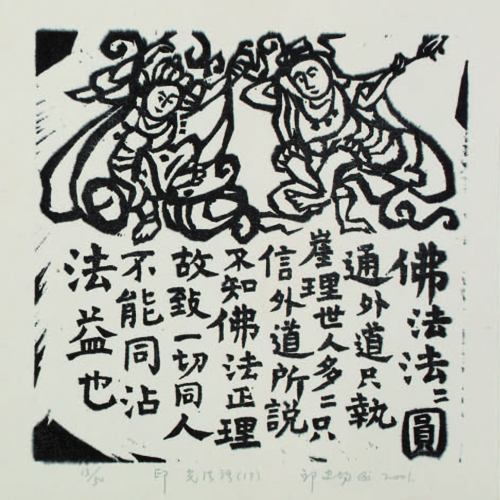 佛法法二圓
通外道只執
崖理世人多二只
信外道所説
不知佛法正理
故致一切同人
不能同沾
法益也
13/50
印
2001